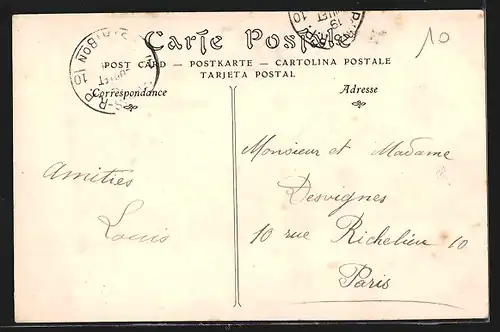 10
Carte Postale
POST CARD — POSTKARTE — CARTOLINA POSTALE
TARJETA POSTAL
Correspondance
Adresse
Monsieur et Madame
Desvignes
10 rue Richelieu 10
Paris
Amitiés
Louis